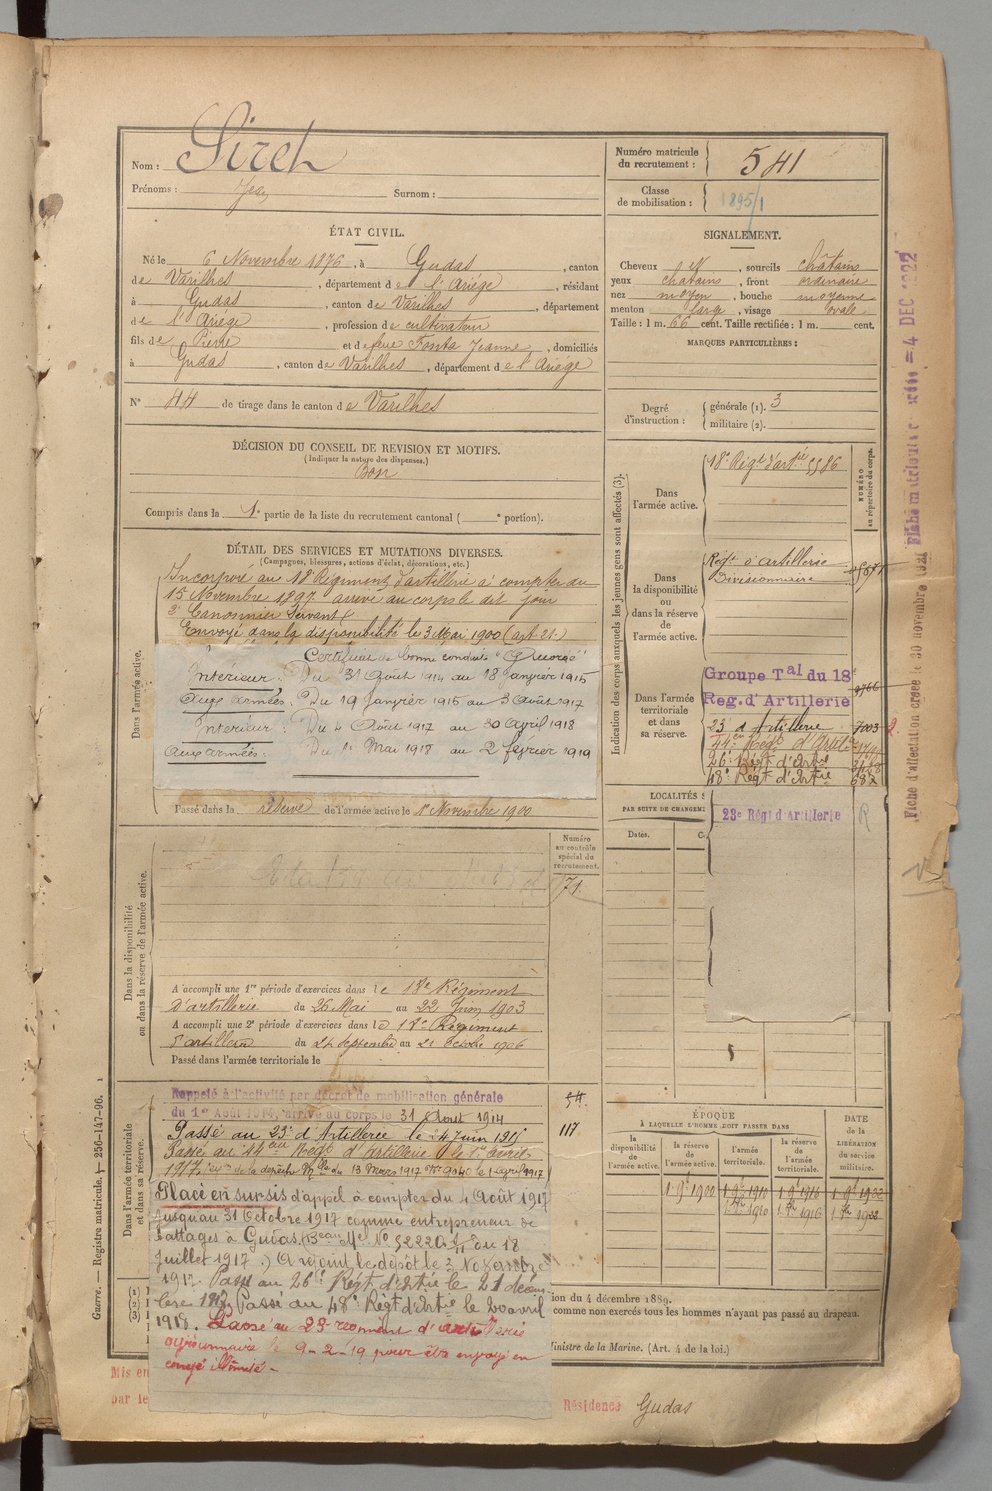 Nom : Sireh
Prénoms : Jean Surnom :
Numéro matricule du recrutement : 541
Classe de mobilisation : 1895/1
ÉTAT CIVIL.
Né le 6 Novembre 1876, à Gudas, canton
de Varilhes, département de l'Ariége, résidant
à Gudas, canton de Varilhes, département
de l'Ariége, profession de cultivateur
fils de Pierre et de feue Fonta Jeanne, domiciliés
à Gudas, canton de Varilhes, département de l'Ariége
N° 44 de tirage dans le canton de Varilhes
SIGNALEMENT.
Cheveux et, sourcils châtains
yeux chatains, front ordinaire
nez moyen, bouche moyenne
menton large, visage ovale
Taille : 1 m. 66 cent. Taille rectifiée : 1 m. cent.
MARQUES PARTICULIÈRES :
Degré d'instruction : générale (1). 3
militaire (2).
DÉCISION DU CONSEIL DE REVISION ET MOTIFS.
(Indiquer la nature des dispenses.)
Bon
Compris dans la 1e partie de la liste du recrutement cantonal ( e portion).
DÉTAIL DES SERVICES ET MUTATIONS DIVERSES.
(Campagnes, blessures, actions d'éclat, décorations, etc.)
Dans l'armée active.
Incorporé au 18e Régiment d'artillerie à compter du
15 Novembre 1897 arrivé au corps le dit jour
2e Canonnier Servant
Envoyé dans la disponibilité le 3 Mai 1900 (art. 21.)
Certificat de bonne conduite "
Intérieur : Du 31 Août 1914 au 18 janvier 1915
aux armées : Du 19 janvier 1915 au 3 Août 1917
Intérieur : Du 4 Août 1917 au 30 April 1918
aux armées : Du 1er Mai 1918 au 2 février 1919
Passé dans la réserve de l'armée active le 1er Novembre 1900
Indication des corps auxquels les jeunes gens sont affectés (3).
NUMÉRO au répertoire du corps.
Dans l'armée active.
18e Régt d'artie 5586
Dans la disponibilité ou dans la réserve de l'armée active.
Régt d'artillerie
Divisionnaire
Dans l'armée territoriale et dans sa réserve.
Groupe Tal du 18
Reg. d'Artillerie
23e d'Artillerie 7003
44e Régt d'Artie
26e Régt d'Artie
48e Régt d'Artie
23e Régt d'Artillerie
R
LOCALITÉS
PAR SUITE DE CHANGEM
Dates.
Fiche d'affectation créée le 30 novembre
4 DEC
Dans la disponibilité ou dans la réserve de l'armée active.
Numéro au contrôle spécial du recrutement.
71
A accompli une 1re période d'exercices dans le 18e Régiment
d'artillerie du 26 Mai au 22 Juin 1903
A accompli une 2e période d'exercices dans le 18e Régiment
d'artillerie du 24 septembre au 21 octobre 1906
Passé dans l'armée territoriale le
Dans l'armée territoriale et dans sa réserve.
Rappelé à l'activité par décret de mobilisation générale
du 1er Août 1914, arrivé au corps le 31 Août 1914
Passé au 23e d'Artillerie le 24 juin 1915
117
Passé au 44eme Régt d'Artillerie le 1er avril
1917
Placé en sursis d'appel à compter du 4 Août 1917
jusqu'au 31 Octobre 1917 comme entrepreneur de
battages à Gudas,
Juillet 1917.) A rejoint le dépôt le 3 Novembre
1917 Passé au 26e Régt d'Artie le 21 décem-
bre 1917. Passé au 48e Régt d'Artie le 20 avril
1918. Passé au 23e regiment d'artillerie
le 9-2-19 pour être envoyé en
congé illimité -
ÉPOQUE
À LAQUELLE L'HOMME DOIT PASSER DANS
la disponibilité de l'armée active.
la réserve de l'armée active.
l'armée territoriale.
la réserve de l'armée territoriale.
DATE de la LIBÉRATION du service militaire.
1 9 1900 1 9 1910 1 9 1916 1 9 1922
ion du 4 décembre 1889.
comme non exercés tous les hommes n'ayant pas passé au drapeau.
Ministre de la Marine. (Art. 4 de la loi.)
Mis en
par le
Résidence Gudas
Guerre. — Registre matricule. 256-147-96.